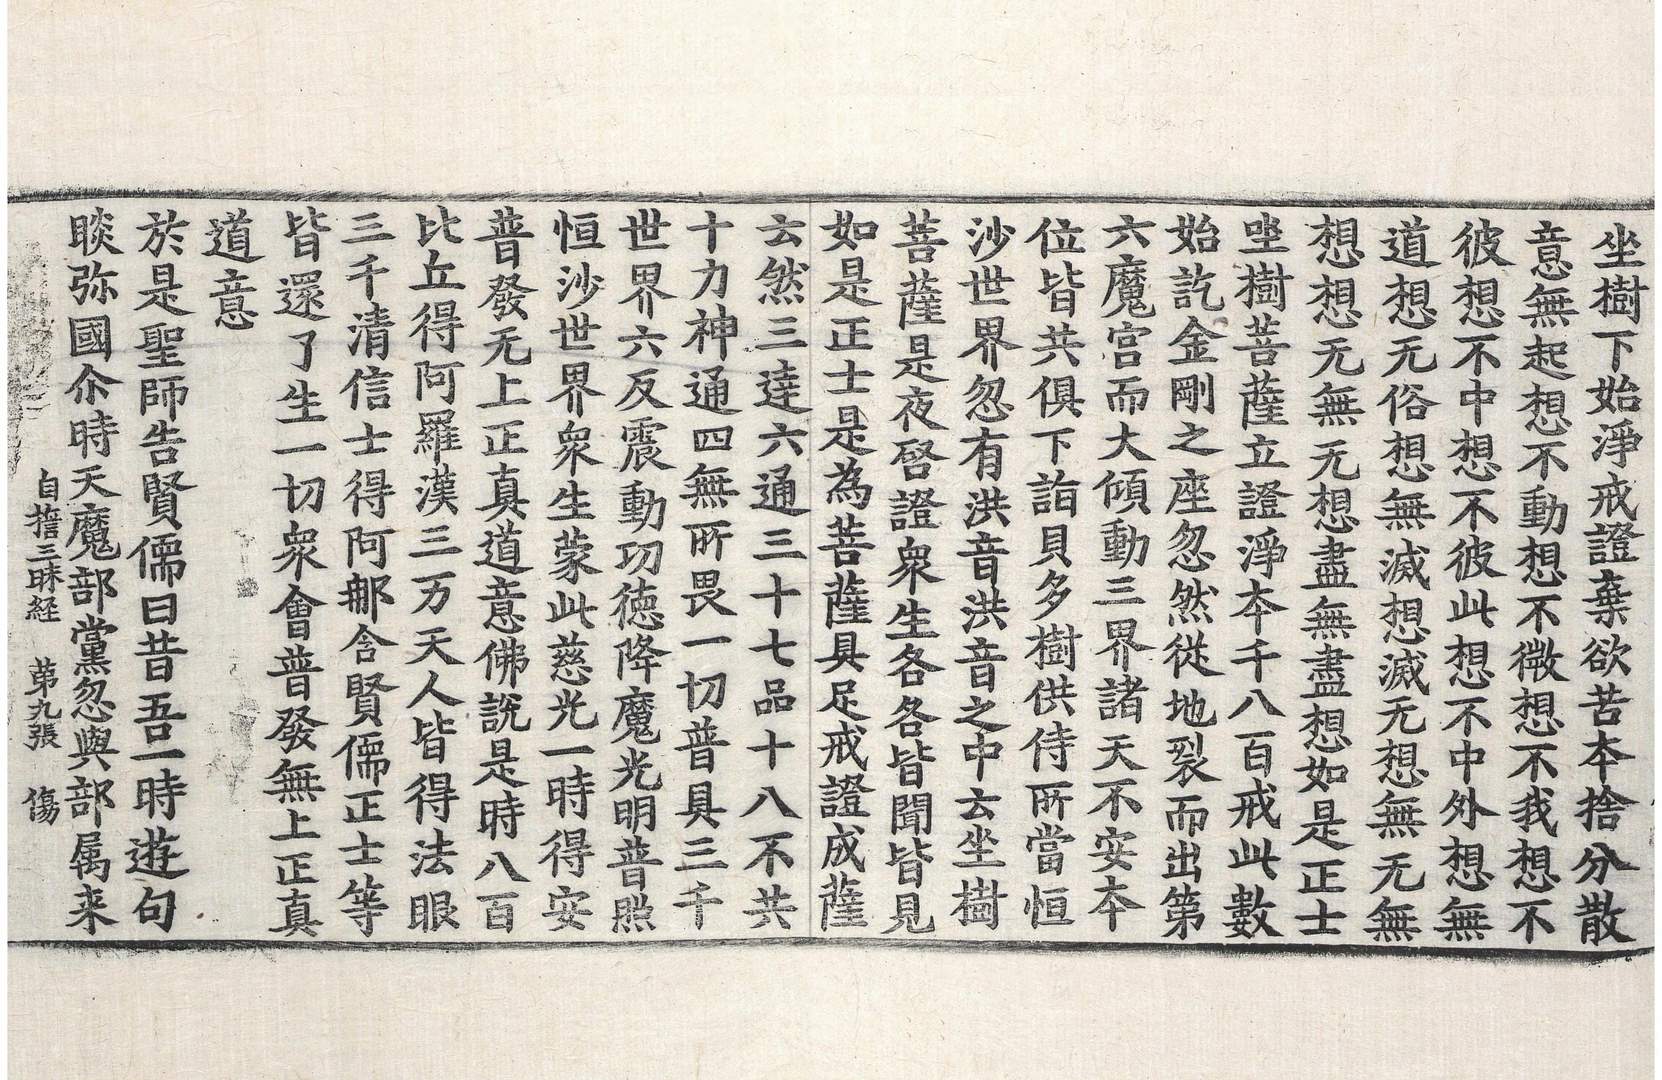 坐樹下始淨戒證棄欲苦本捨分散
意無起想不動想不微想不我想不
彼想不中想不彼此想不中外想無
道想无俗想無滅想滅无想無无無
想想无無无想盡無盡想如是正士
坐樹菩薩立證淨本千八百戒此數
始訖金剛之座忽然從地裂而出第
六魔宮而大傾動三界諸天不安本
位皆共俱下詣貝多樹供侍所當恒
沙世界忽有洪音洪音之中云坐樹
菩薩是夜啓證衆生各各皆聞皆見
如是正士是為菩薩具足戒證成薩
云然三達六通三十七品十八不共
十力神通四無所畏一切普具三千
世界六反震動功德降魔光明普照
恒沙世界衆生蒙此慈光一時得安
普發无上正真道意佛說是時八百
比丘得阿羅漢三万天人皆得法眼
三千清信士得阿那含賢儒正士等
皆還了生一切衆會普發無上正真
道意
於是聖師告賢儒曰昔吾一時遊句
睒弥國尒時天魔部黨忽與部属来
自擔三昧経 第九張 傷